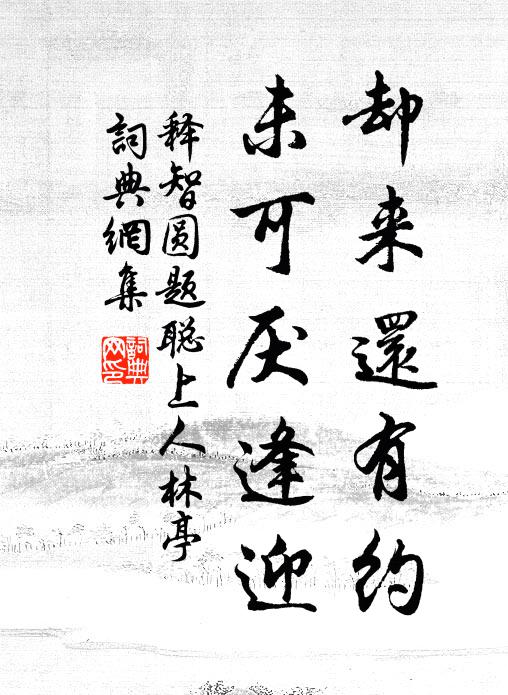 却来還有约
未可厌逢迎
释智圆题聪上人林亭
詞典網集
詞典网印